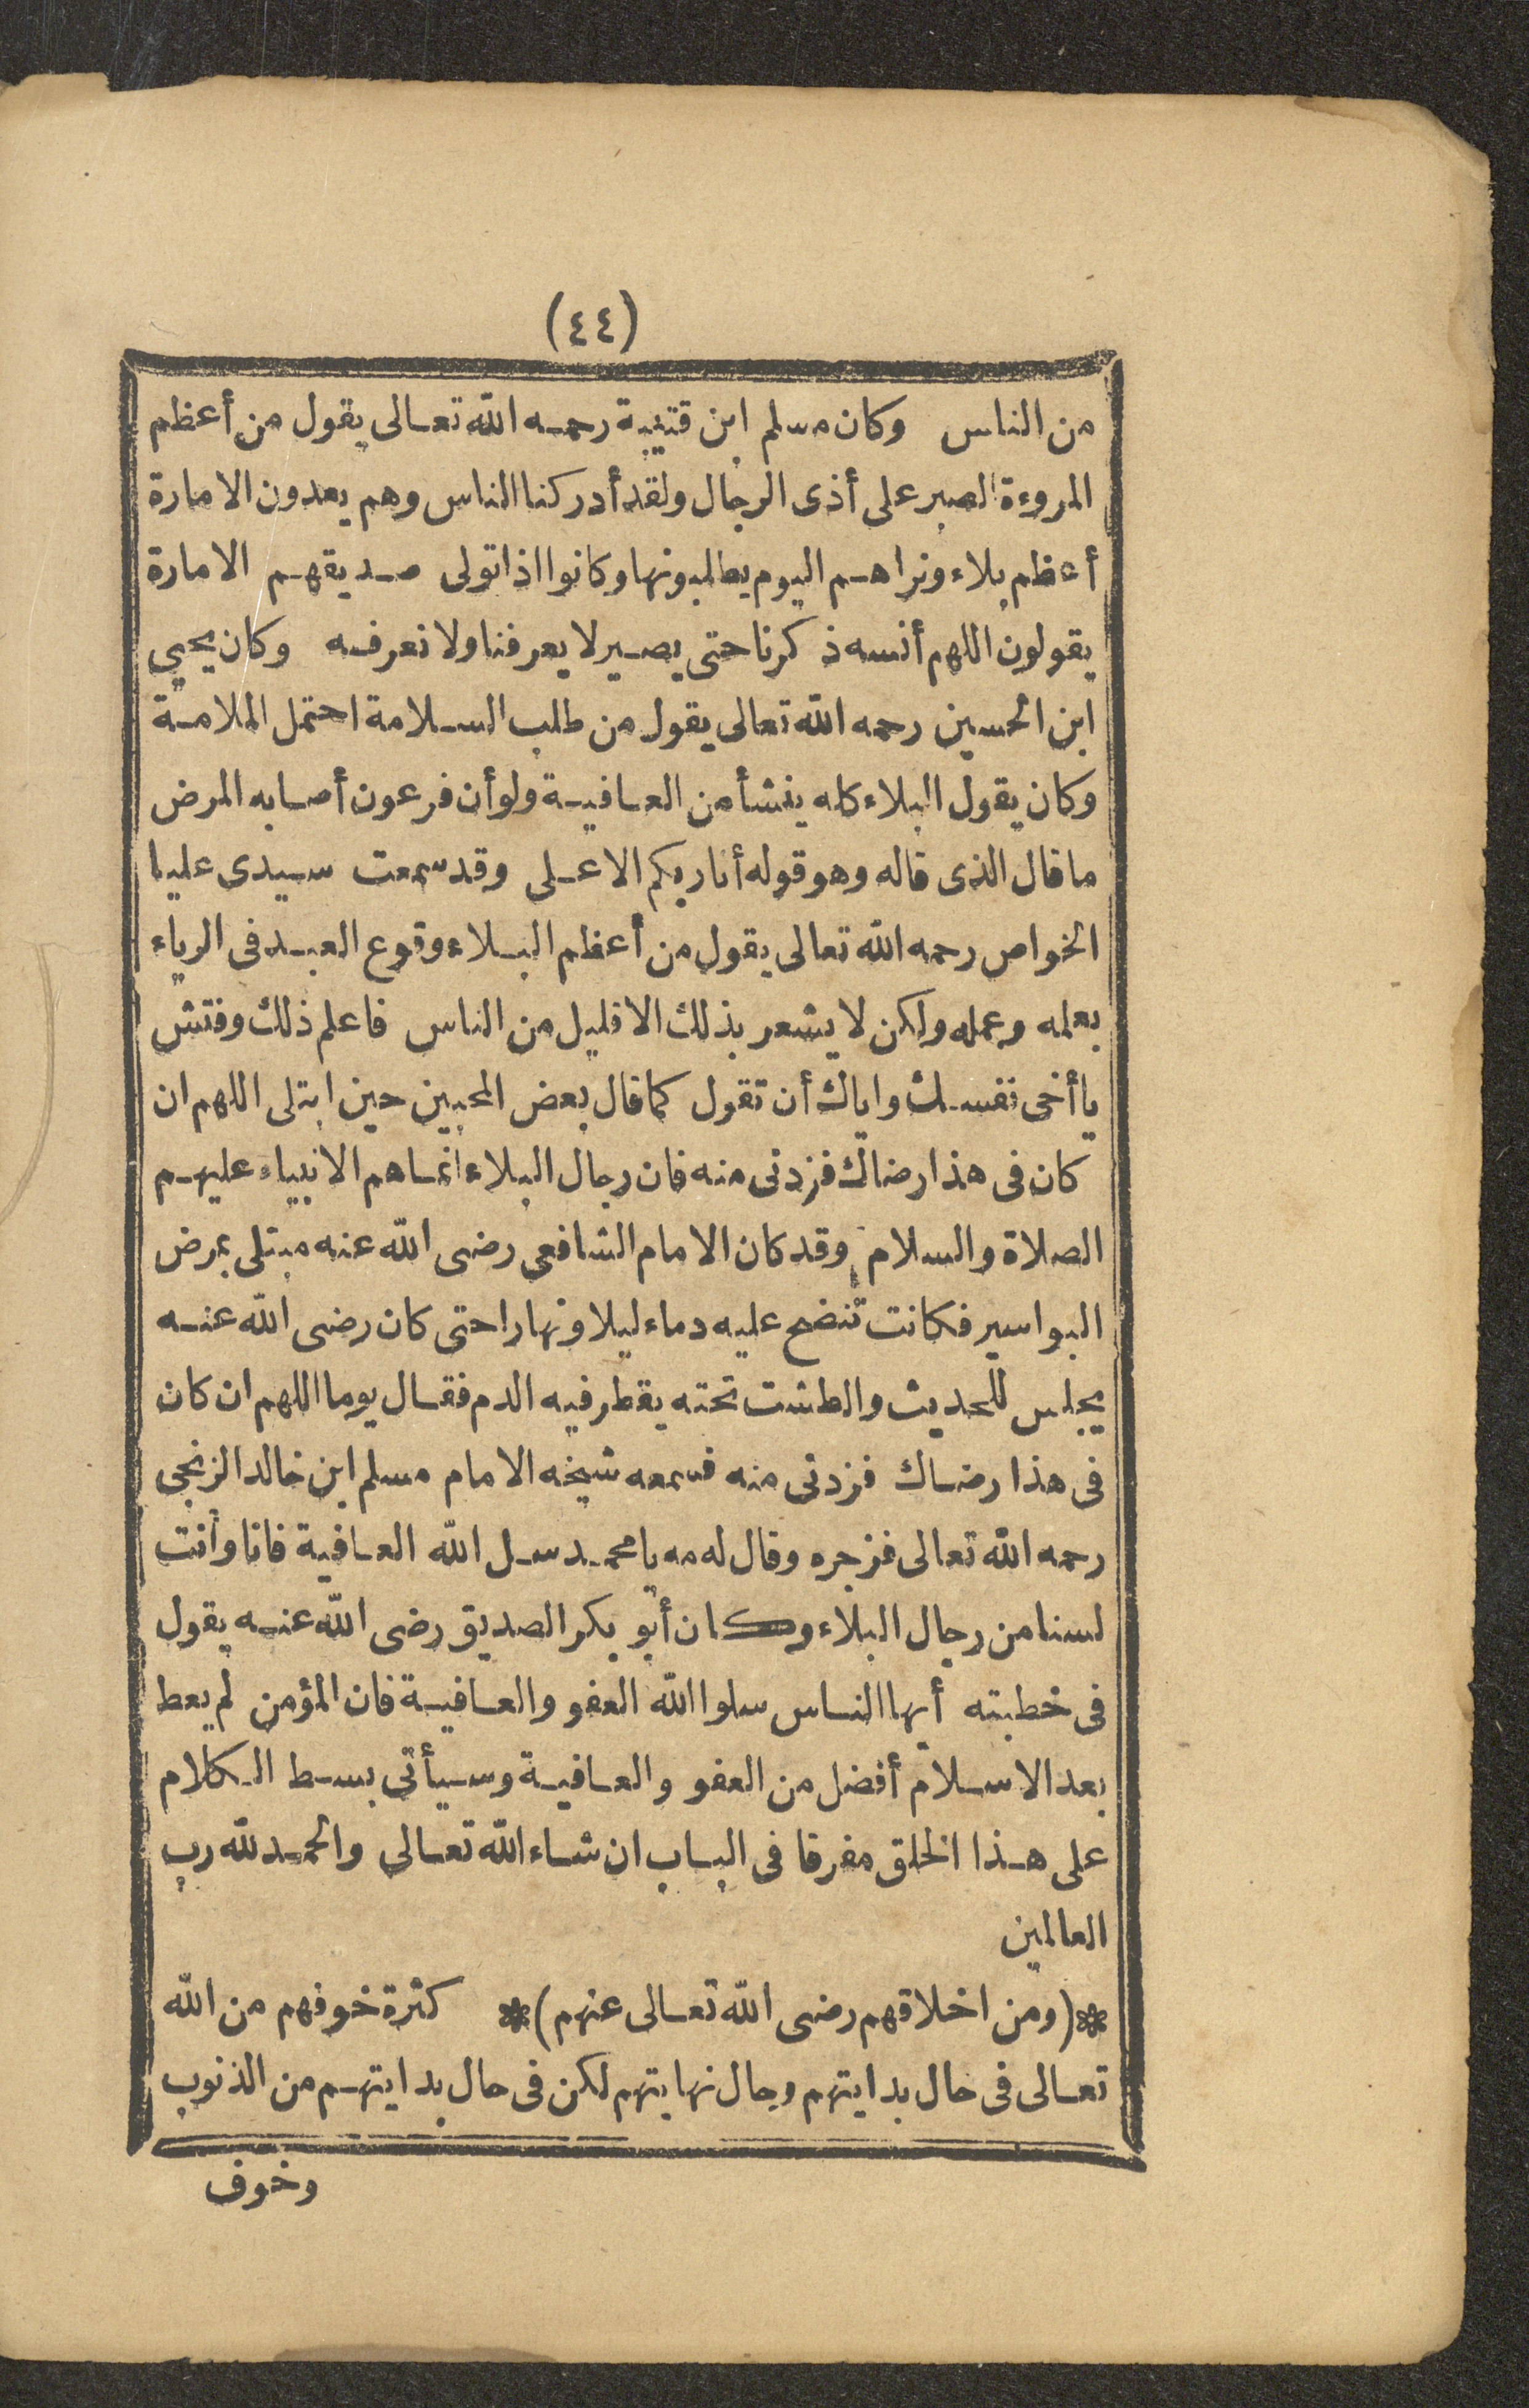 (٤٤)
من الناس وكان مسلم ابن قتيبة رحمه الله تعالى يقول من أعظم
المروءة الصبر على أذى الرجال ولقد أدركنا الناس وهم يعدون الامارة
أعظم بلاء ونراهم اليوم يطلبونها وكانوا اذا تولى صديقهم الامارة
يقولون اللهم أنسه ذكرنا حتى يصير لا يعرفنا ولا نعرفه وكان يحيي
ابن الحسين رحمه الله تعالى يقول من طلب السلامة احتمل الملامة
وكان يقول البلاء كله ينشأ من العافية ولو أن فرعون أصابه المرض
ما قال الذى قاله وهو قوله أنا ربكم الاعلى وقد سمعت سيدى عليا
الخواص رحمه الله تعالى يقول من أعظم البلاء وقوع العبد فى الرياء
بعلمه وعمله ولكن لا يشعر بذلك الا قليل من الناس فاعلم ذلك وفتش
يا أخى نفسك واياك أن تقول كما قال بعض المحبين حين ابتلى اللهم ان
كان فى هذا رضاك فزدنى منه فان رجال البلاء انما هم الانبياء عليهم
الصلاة والسلام وقد كان الامام الشافعى رضى الله عنه مبتلى بمرض
البواسير فكانت تنضح عليه دماء ليلا ونهارا حتى كان رضى الله عنه
يجلس للحديث والطشت تحته يقطر فيه الدم فقال يوما اللهم ان كان
فى هذا رضاك فزدنى منه فسمعه شيخه الامام مسلم ابن خالد الزنجى
رحمه الله تعالى فزجره وقال له مه يا محمد سل الله العافية فانا وأنت
لسنا من رجال البلاء وكان أبو بكر الصديق رضى الله عنه يقول
فى خطبته أيها الناس سلوا الله العفو والعافية فان المؤمن لم يعط
بعد الاسلام أفضل من العفو والعافية وسيأتى بسط الكلام
على هذا الخلق مفرقا فى الباب ان شاء الله تعالى والحمد لله رب
العالمين
*(ومن اخلاقهم رضى الله تعالى عنهم)* كثرة خوفهم من الله
تعالى فى حال بدايتهم وحال نهايتهم لكن فى حال بدايتهم من الذنوب
وخوف